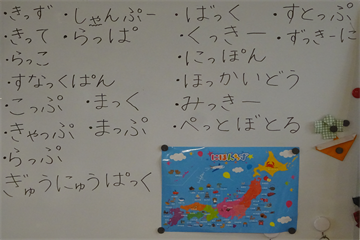 ・きっず
・しゃんぷー
・きって
・らっぱ
・らっこ
・すなっくぱん
・こっぷ
・まっく
・きゃっぷ
・まっぷ
・らっぷ
ぎゅうにゅうぱっく
・ばっく
・すとっぷ
・くっきー
・ずっきーに
・にっぽん
・ほっかいどう
・みっきー
・ぺっとぼとる